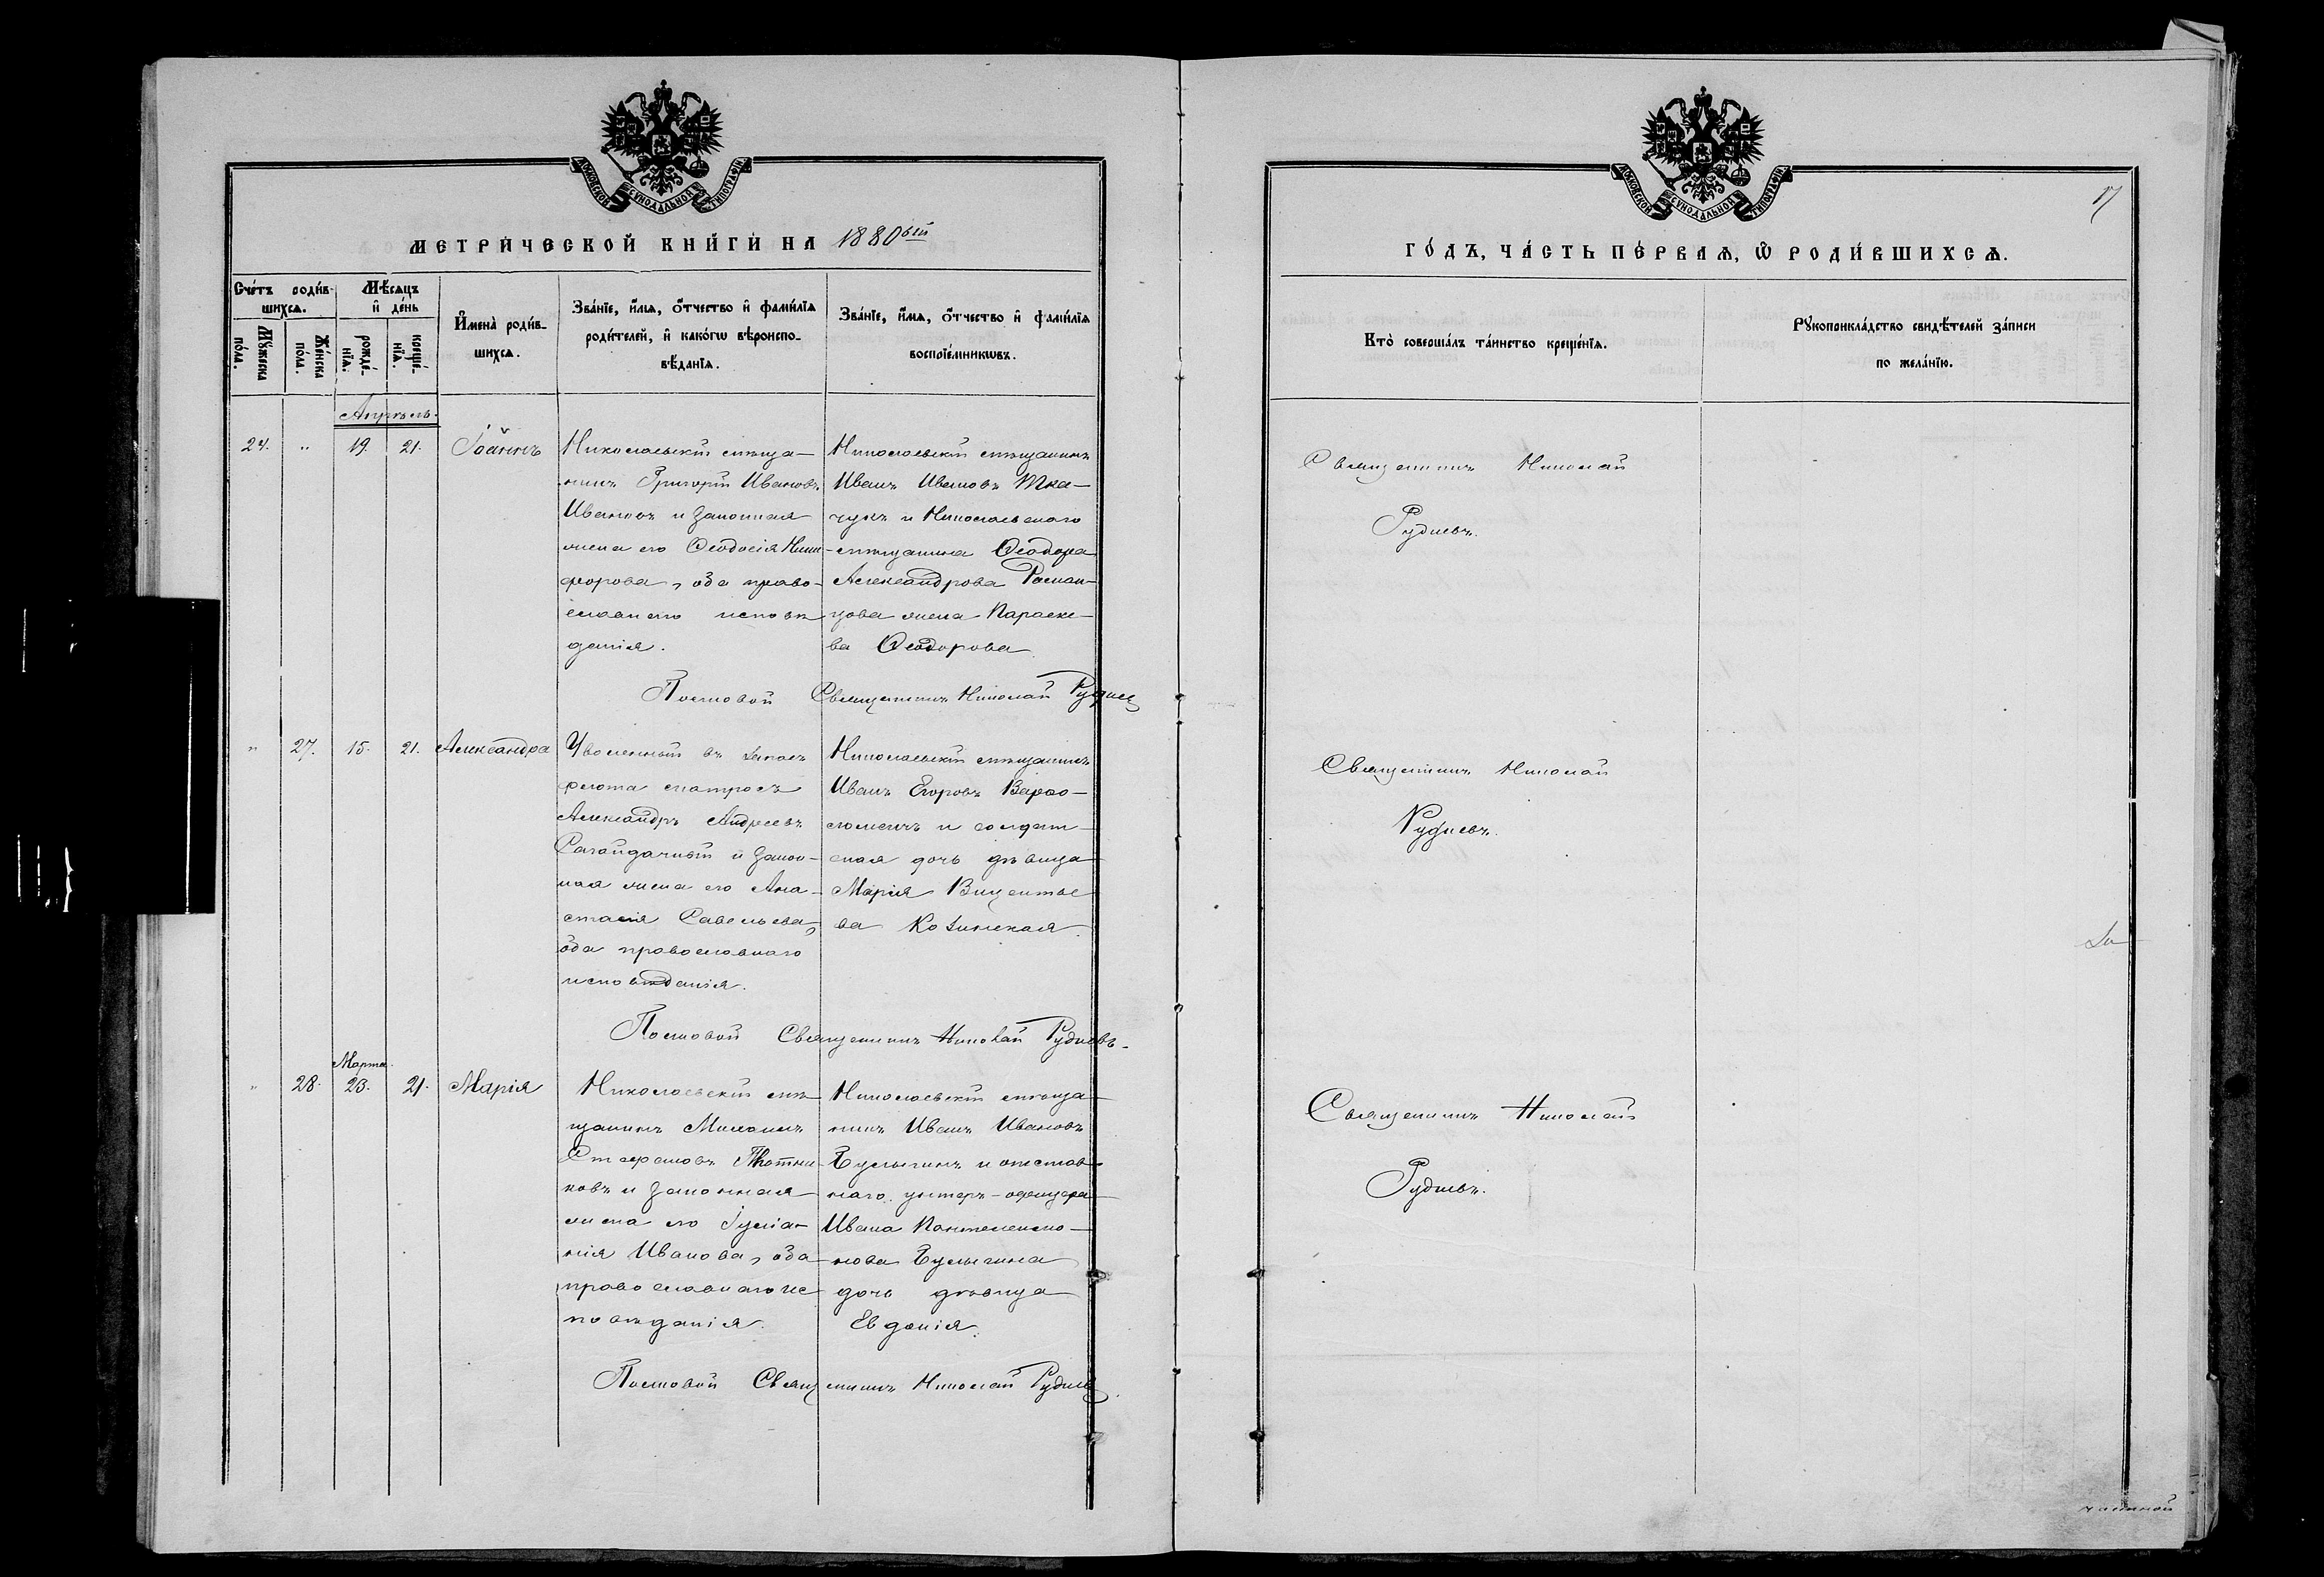 МОСКОВСКОЙ СѴНОДАЛЬНОЙ ТИПОГРАФІИ
МЕТРИ́ЧЕСКОЙ КНИ́ГИ НА 1880ый
Сче́тъ роди́в-
шихсѧ.
Мѣ́сѧцъ
и҆ де́нь
Мꙋ́жеска
по́ла.
Же́нска
по́ла.
рожде́-
нїѧ.
креще́-
нїѧ.
И҆мена̀ роди́в-
шихсѧ.
Зва́нїе, и҆́мѧ, ѻ҆́тчество и҆ фами́лїѧ
роди́телей, и҆ како́гѡ вѣроиспо-
вѣ́данїѧ.
Зва́нїе, и҆́мѧ, ѻ҆́тчество и҆ фами́лїѧ
воспрїе́мникѡвъ.
Апрѣль.
24. " 19. 21. Іоаннъ
Николаевскій мѣща-
нинъ Григорій Ивановъ
Ивановъ и законная
жена его Ѳеодосія Ники-
форова, оба право-
славнаго исповѣ
данія.
Николаевскій мѣщанинъ
Иванъ Ивановъ Тка-
чукъ и Николаевскаго
мѣщанина Ѳеодора
Александрова
жена Параске-
ва Ѳеодорова
Приходской Священникъ Николай Рудневъ
" 27. 15. 21. Александра
Уволенный въ запасъ
флота матросъ
Александръ Андреевъ
Сагайдачный и закон-
ная жена его Ана-
стасія Савельева,
оба православнаго
исповѣданія.
Николаевскій мѣщанинъ
Иванъ Егоровъ Варфо-
ломеичъ и солдат-
ская дочь дѣвица
Марія Викентье
ва Козинская.
Священникъ Николай Рудневъ.
Марта
" 28. 23. 21. Марія
Николаевскій мѣ-
щанинъ Михаилъ
Стефановъ Плотни-
ковъ и законная
жена его Іуліа-
нія Иванова, оба
православнаго ис
повѣданія.
Николаевскій мѣща-
нинъ Иванъ Ивановъ
Булыгинъ и отстав-
наго унтеръ-офицера
Ивана Пантелеймо-
нова Булыгина
дочь дѣвица
Евдокія.
Священникъ Николай Рудневъ
МОСКОВСКОЙ СѴНОДАЛЬНОЙ ТИПОГРАФІИ
17
ГО́ДЪ, ЧА́СТЬ ПЕ́РВАѦ, Ѽ РОДИ́ВШИХСѦ.
Кто̀ соверша́лъ та́инство креще́нїѧ.
Рꙋкоприкла́дство свидѣ́телей за́писи
по жела́нїю.
Священникъ Николай
Рудневъ.
Священникъ Николай
Рудневъ.
Священникъ Николай
Рудневъ.